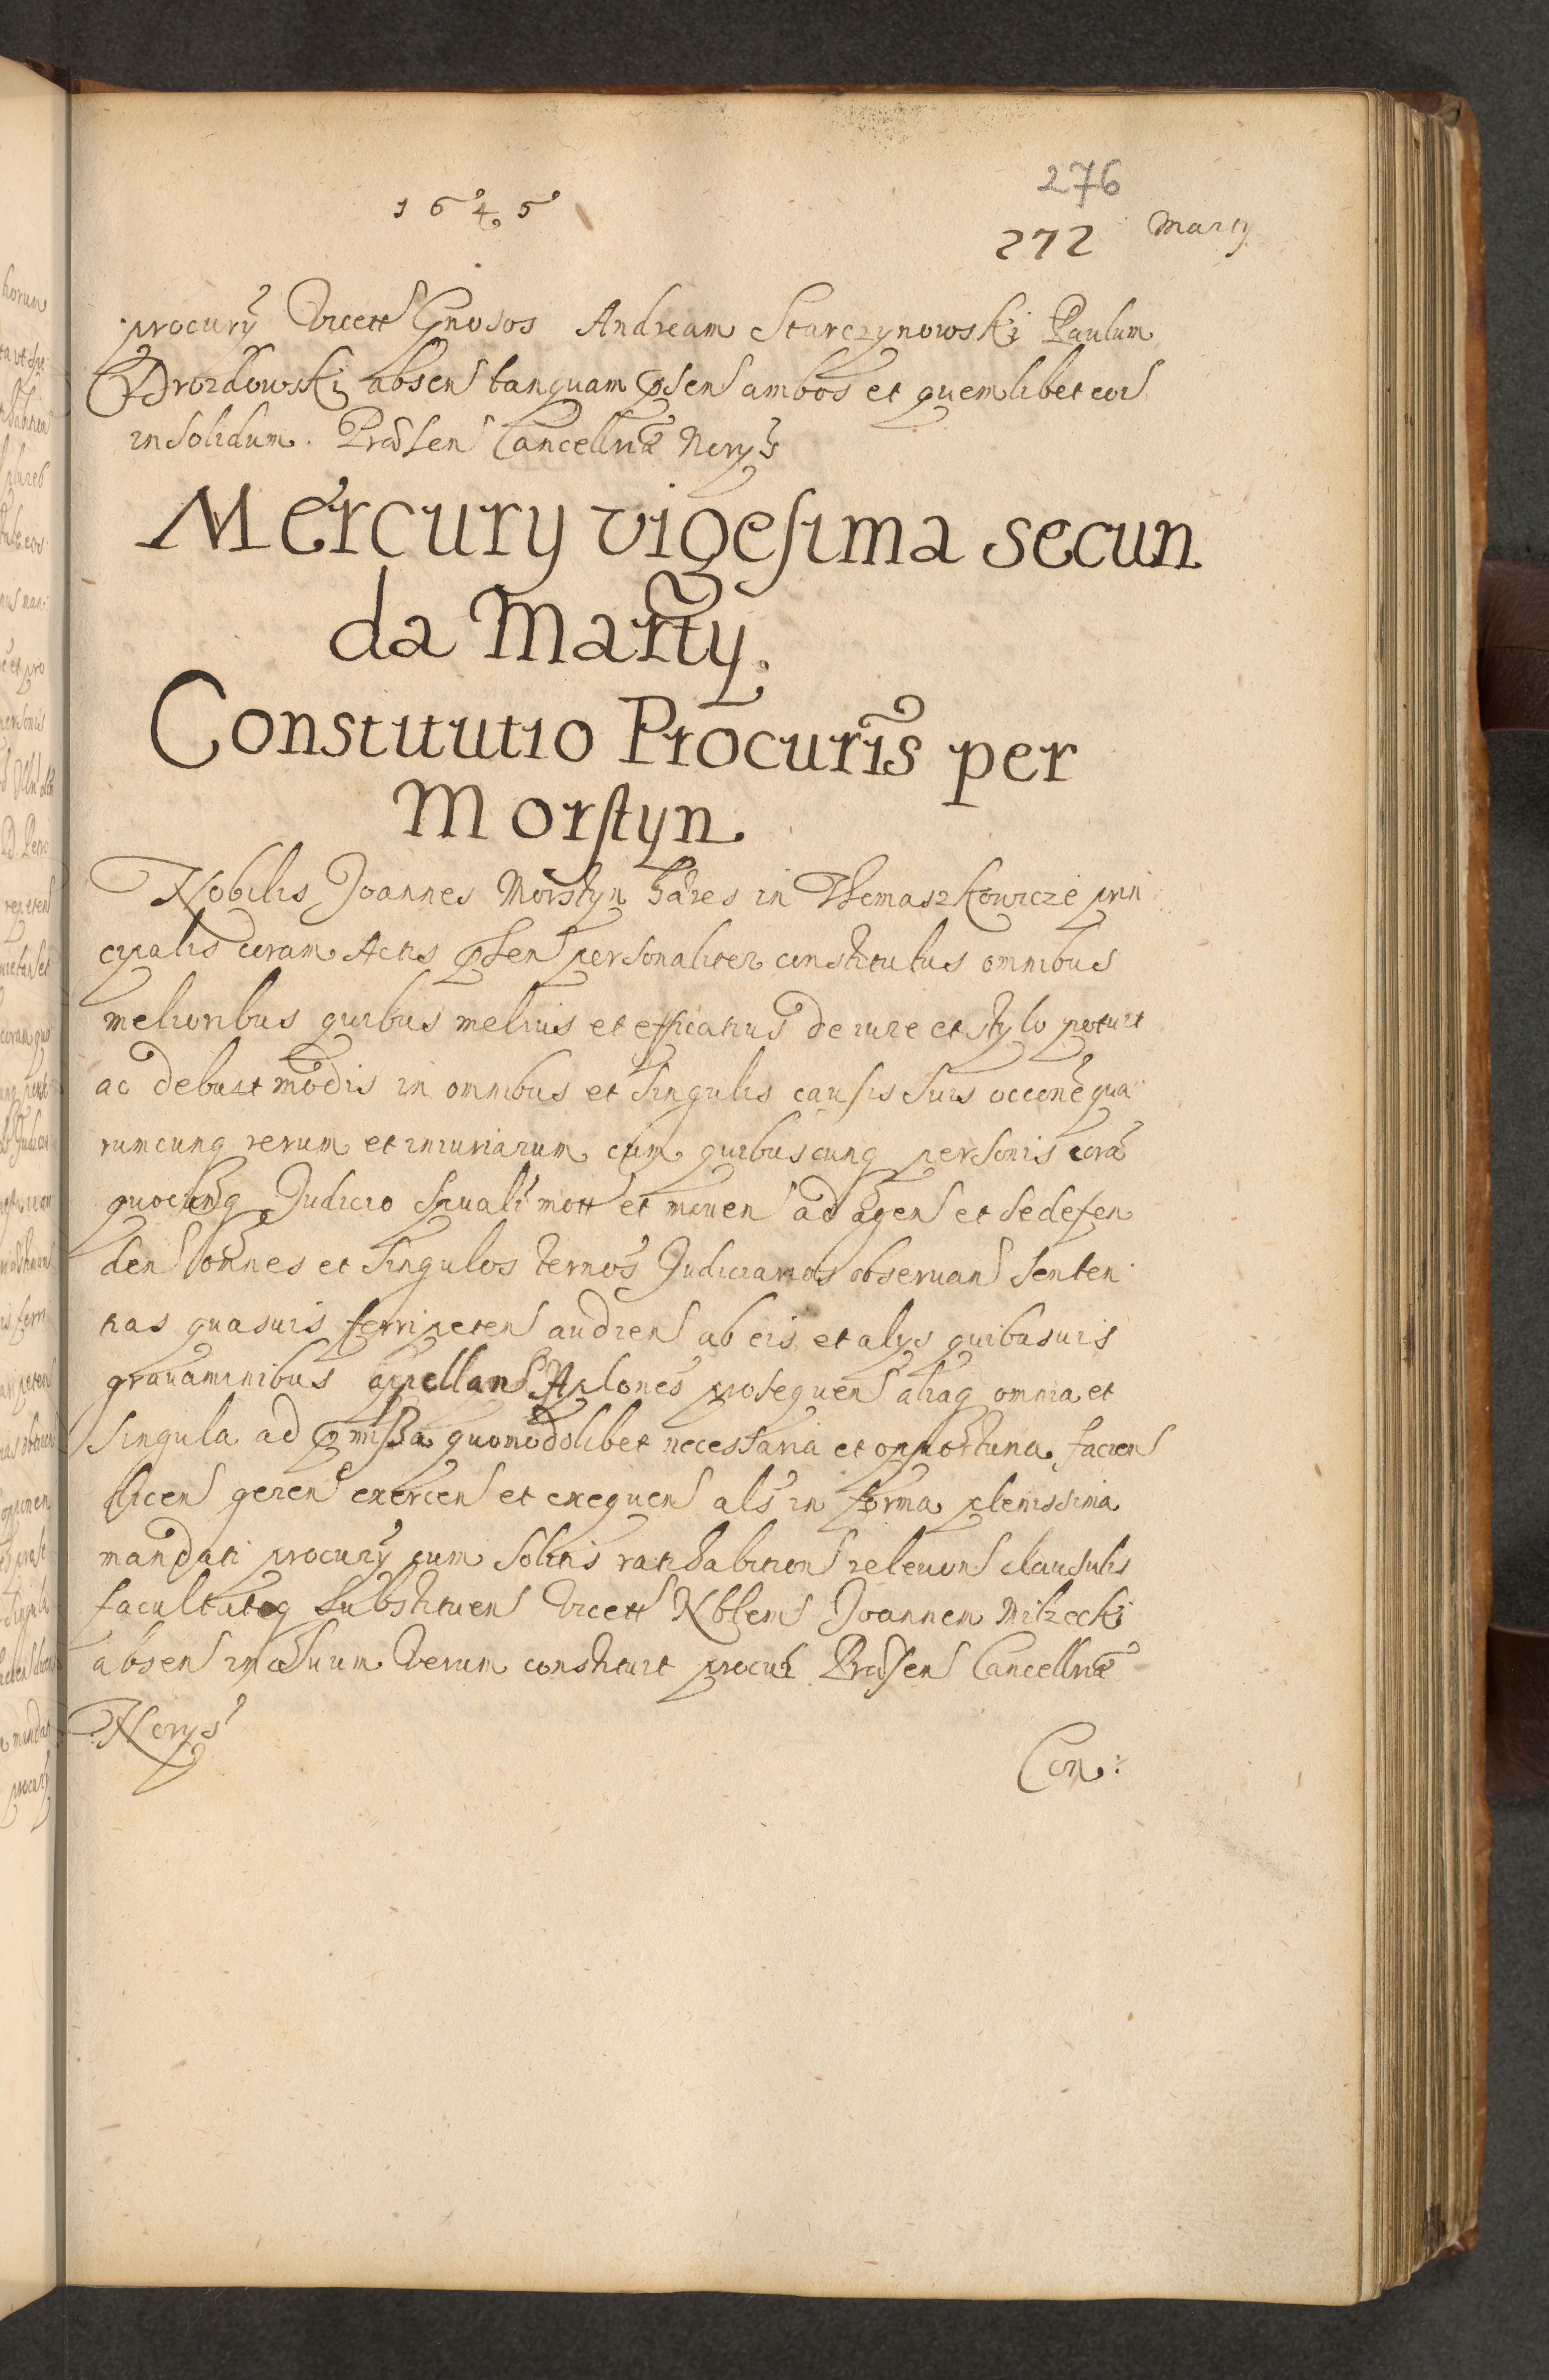 276
1645
272 Marty
procury Vicett Gnosos Andream Starczynowski Paulum
Drozdowski absen tanquam psen ambos et quemlibet eor
in solidum. Praesen Cancellria Nerys
Mercury vigesima secun
da Marty.
Constitutio Procuris per
Morstyn.
Nobilis Joannes Morstyn haeres in Themaszkowicze prin
cipalis coram Actis psen personaliter constitutus omnibus
melioribus quibus melius et efficatius de iure et stylo potuit
ac debuit modis in omnibus et singulis causis suis occone qua
rumcunq rerum et iniuriarum cum quibuscunq personis cora
quocunq Judicio spuali mott et mouen ad agen et se defen
den omnes et singulos ternos Judiciarios obseruan senten
tias quasuis ferri peten audien ab eis et alys quibusuis
grauaminibus appellan Aplones prosequen aliaq omnia et
singula ad pmissa quomodolibet necessaria et opportuna facien
dicen geren exercen et exequen als in forma plenissima
mandati procury cum solitis ratihabition releuon clausulis
facultateq substituen Vicett Nblem Joannem Milzecki
absen in suum verum constituit procur Praesen Cancellria
Nerys
Con: